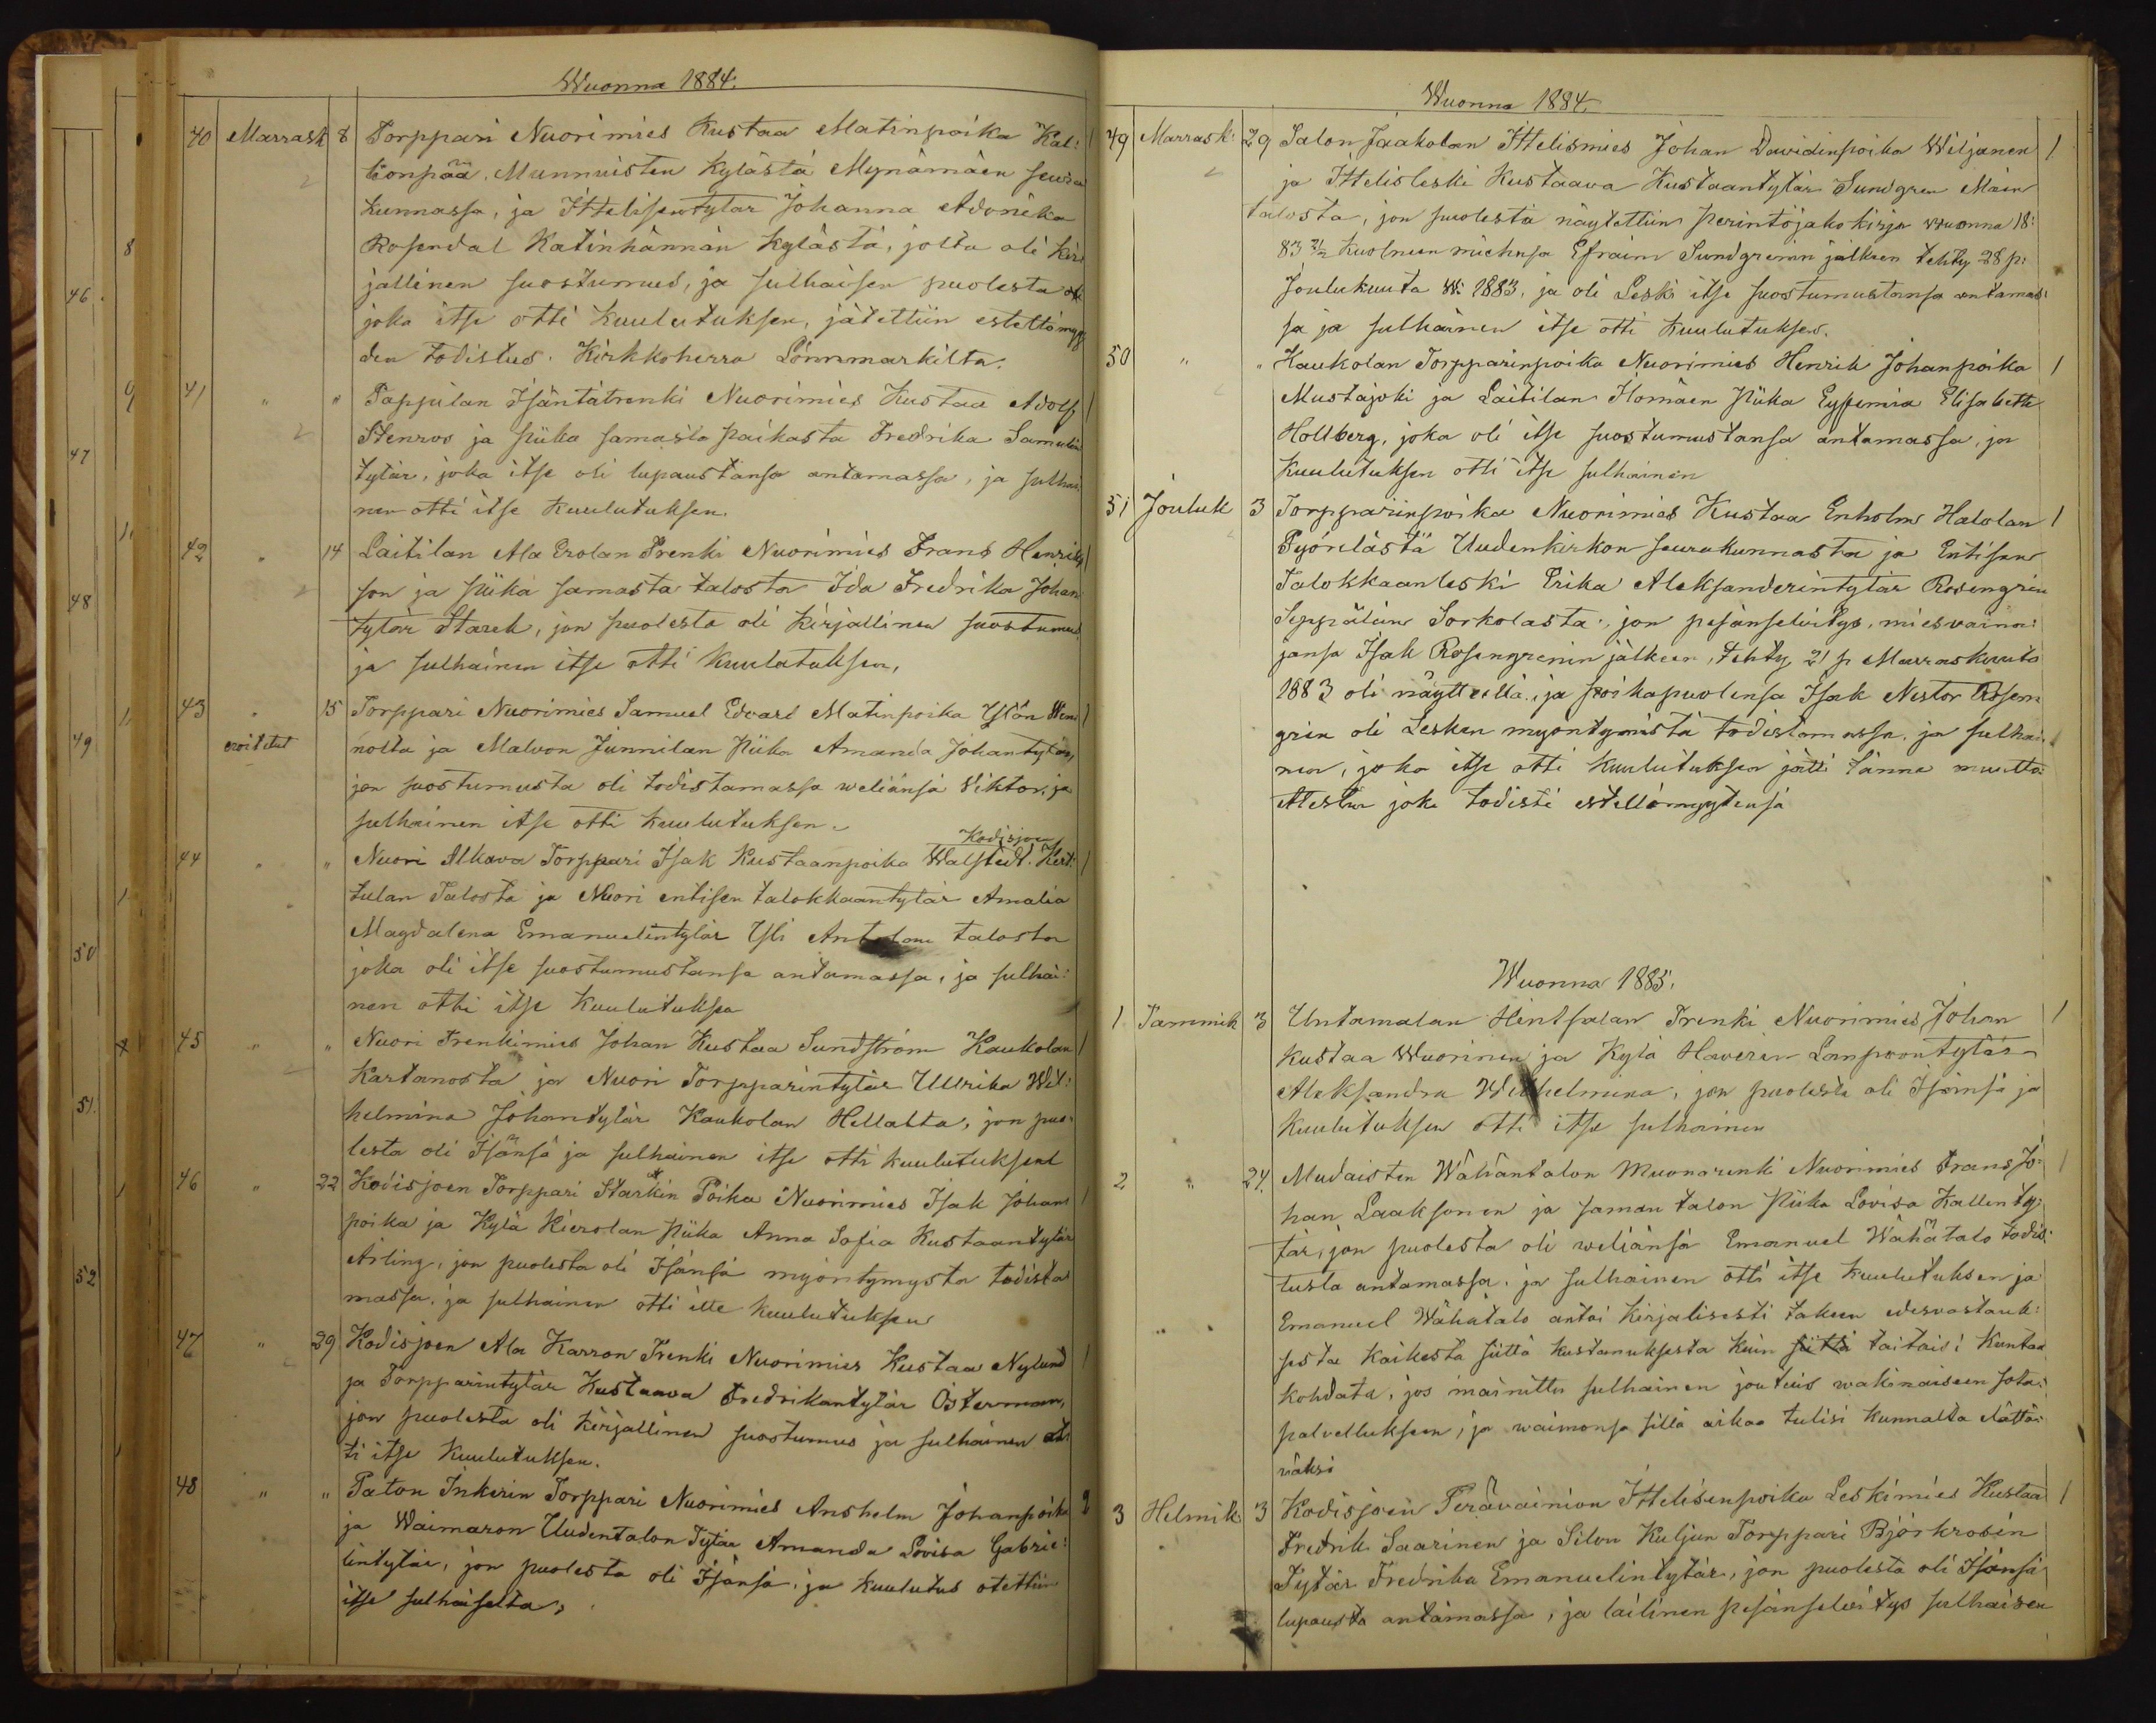 Wuonna 1884.
40 Marrask 8 Torppari Nuorimies Kustaa Matinpoika Kal: 1
lionpää, Munnuisten Kylästä Mynämäen seura
kunnassa, ja Ittelisentytar Johanna Adonika
Rosendal Katinhännän Kylästä, jolta oli kir:
jallinen suostumus, ja sulhaisen puolesta
joka itse otti Kuulutuksen, jätettiin estettömyy
den todistus. Kirkkoherra Lönnmarkilta.
41 " " Pappilan Isäntätrenki Nuorimies Kustaa Adolf 1
Stenros ja piika samasta paikasta Fredrika Samulin
tytär, joka itse oli lupaustansa antamassa, ja sulhai
nen otti itse Kuulutuksen.
42 " 14 Laitilan Ala Erolan Trenki Nuorimies Frans Henriks 1
son ja piika samasta talosta Ida Fredrika Johan
tytär Starck, jon puolesta oli Kirjallinen suostumus
ja sulhainen itse otti Kuulutuksen,
43 " 15 Torppari Nuorimies Samuel Edvard Matinpoika Ylön Wen 1
eroitetut nolta ja Malvon Junnilan Piika Amanda Johantytär,
jon suostumusta oli todistamassa weliänsä Viktor, ja
sulhainen itse otti Kuulutuksen.
Kodisjoen
44 " " Nuori Alkava Torppari Isak Kustaanpoika Walstedt. Kert: 1
tulan Talosta ja Nuori entisen talokkaantytär Amalia
Magdalena Emanuelintytär Yli talosta
joka oli itse suostumustansa antamassa, ja sulhai:
nen otti itse Kuulutuksen
45 " " Nuori Trenkimies Johan Kustaa Sundström Kaukolan 1
Kartanosta ja Nuori Torpparintytär Ullrika Wil:
helmina Johantytär Kaukolan Hellalta, jon puo:
lesta oli Isänsä ja sulhainen itse otti kuulutuksen
46 " 22 Kodisjoen Torppari Starkin Poika Nuorimies Isak Johan 1
poika ja Kylä Kierolan Piika Anna Sofia Kustaantytär
Arling, jon puolesta oli Isänsä myöntymystä todista
massa, ja sulhainen otti itte kuulutuksen
47 " 29 Kodisjoen Ala Karron Trenki Nuorimies Kustaa Nylund 1
ja Torpparintytär Kustaava Fredrikantytär Österman,
jon puolesta oli kirjallinen suostumus ja sulhainen ot:
ti itse Kuulutuksen.
48 " " Paton Inkerin Torppari Nuorimies Anshelm Johanpoika
ja Waimaron Uudentalon Tytär Amanda Lovisa Gabrie:
lintytär, jon puolesta oli Isänsä, ja Kuulutus otettiin
itse sulhaiselta,
8
9
46
47
48
49
50
51.
52
Wuonna 1884.
49 Marrask: 29 Salon Jaakolan Ittelismies Johan Davidinpoika Wiljanen 1
ja Ittelisleski Kustaava Kustaantytär Sundgren Mäen
talosta, jon puolesta näytettiin perintöjako kirja wuonna 18:
83 Kuolneen miehensä Efraim Sundgrenin jälkeen tehty 28 p:
Joulukuuta W: 1883, ja oli Leski itse suostumustansa antamas:
sa ja sulhainen itse otti Kuulutuksen.
50 " " Haukolan Torpparinpoika Nuorimies Henrik Johanpoika 1
Mustajoki ja Laitilan Ilomäen Piika Eyfemia Elisabeth
Hollberg, joka oli itse suostumustansa antamassa, ja
Kuulutuksen otti itse sulhainen
51 Jouluk 3 Torpparinpoika Nuorimies Kustaa Enholm Halolan 1
Pyörelästä Uudenkirkon seurakunnasta ja Entisen
Talokkaanleski Erika Aleksanderintytär Rosengren
Seppälän Sorkolasta, jon pesänselvitys, miesvaina:
jansa Isak Rosengrenin jälkeen, tehty 21 p Marraskuuta
1883 oli näytteillä, ja poikapuolensa Isak Nestor Rosen
gren oli Lesken myöntymistä todistamassa, ja sulhai
nen, joka itse otti Kuulutuksen jätti tänne muutto
Atestin joka todisti estellömyytensä
Wuonna 1885.
1 Tammik 3 Untamalan Hintsalan Trenki Nuorimies Johan 1
Kustaa Wuorinen ja Kylä Haveren Lampvontytär
Aleksandra Wilhelmina, jon puolesta oli Isänsä ja
Kuulutuksen otti itse sulhainen
2 " 24. Mudaisten Wähäntalon Muonarenki Nuorimies Frans Jo: 1
han Laaksonen ja saman talon Piika Lovisa Kallenty:
tär, jon puolesta oli weliänsä Emanuel Wähätalo todis:
tusta antamassa, ja sulhainen otti itse kuulutuksen ja
Emanuel Wähätalo antoi Kirjalisesti takeen edesvastauk:
sesta Kaikesta siittä kustanuksesta kuin siittä taitaisi Kuntaa
kohdata, jos mainittu sulhainen joutuis wakinaiseen sota:
palvelluksseen, ja waimonsa sillä aikaa tulisi kunnalta elättä:
väksi
3 Helmik: 3 Kodisjoen Perävainion Ittelisenpoika Leskimies Kustaa 1
Fredrik Saarinen ja Silon Kuljun Torppari Björkrosin
Tytär Fredrika Emanuelintytär, jon puolesta oli Isänsä
lupausta antamassa, ja lailinen pesänselvitys sulhaisen